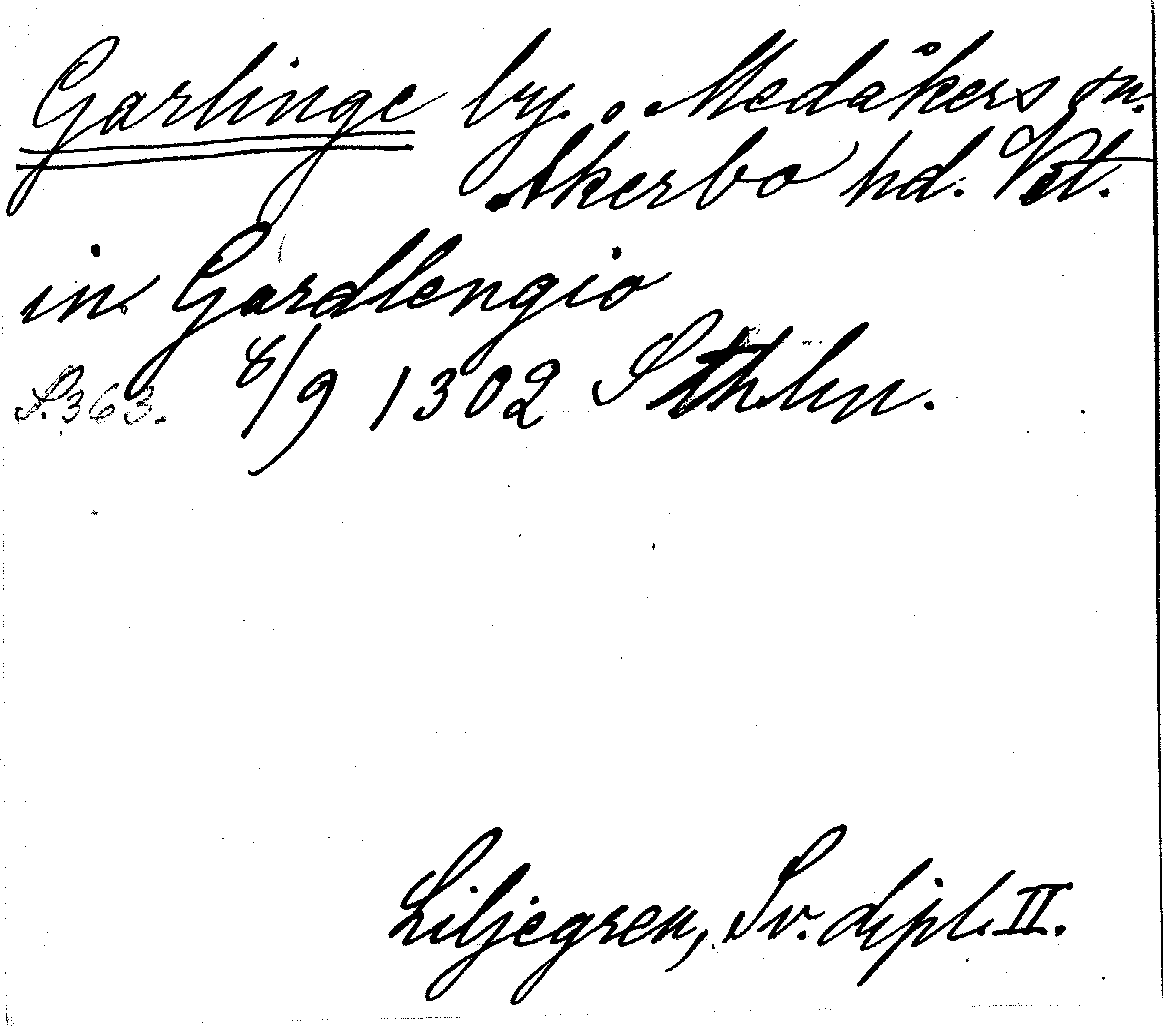 Garlinge by. Medåkers sn.
Åkerbo hd. Vstl.
in Gardlengio
S. 363. 8/9 1302 Sthlm.
Liljegren, Sv. dipl. II.